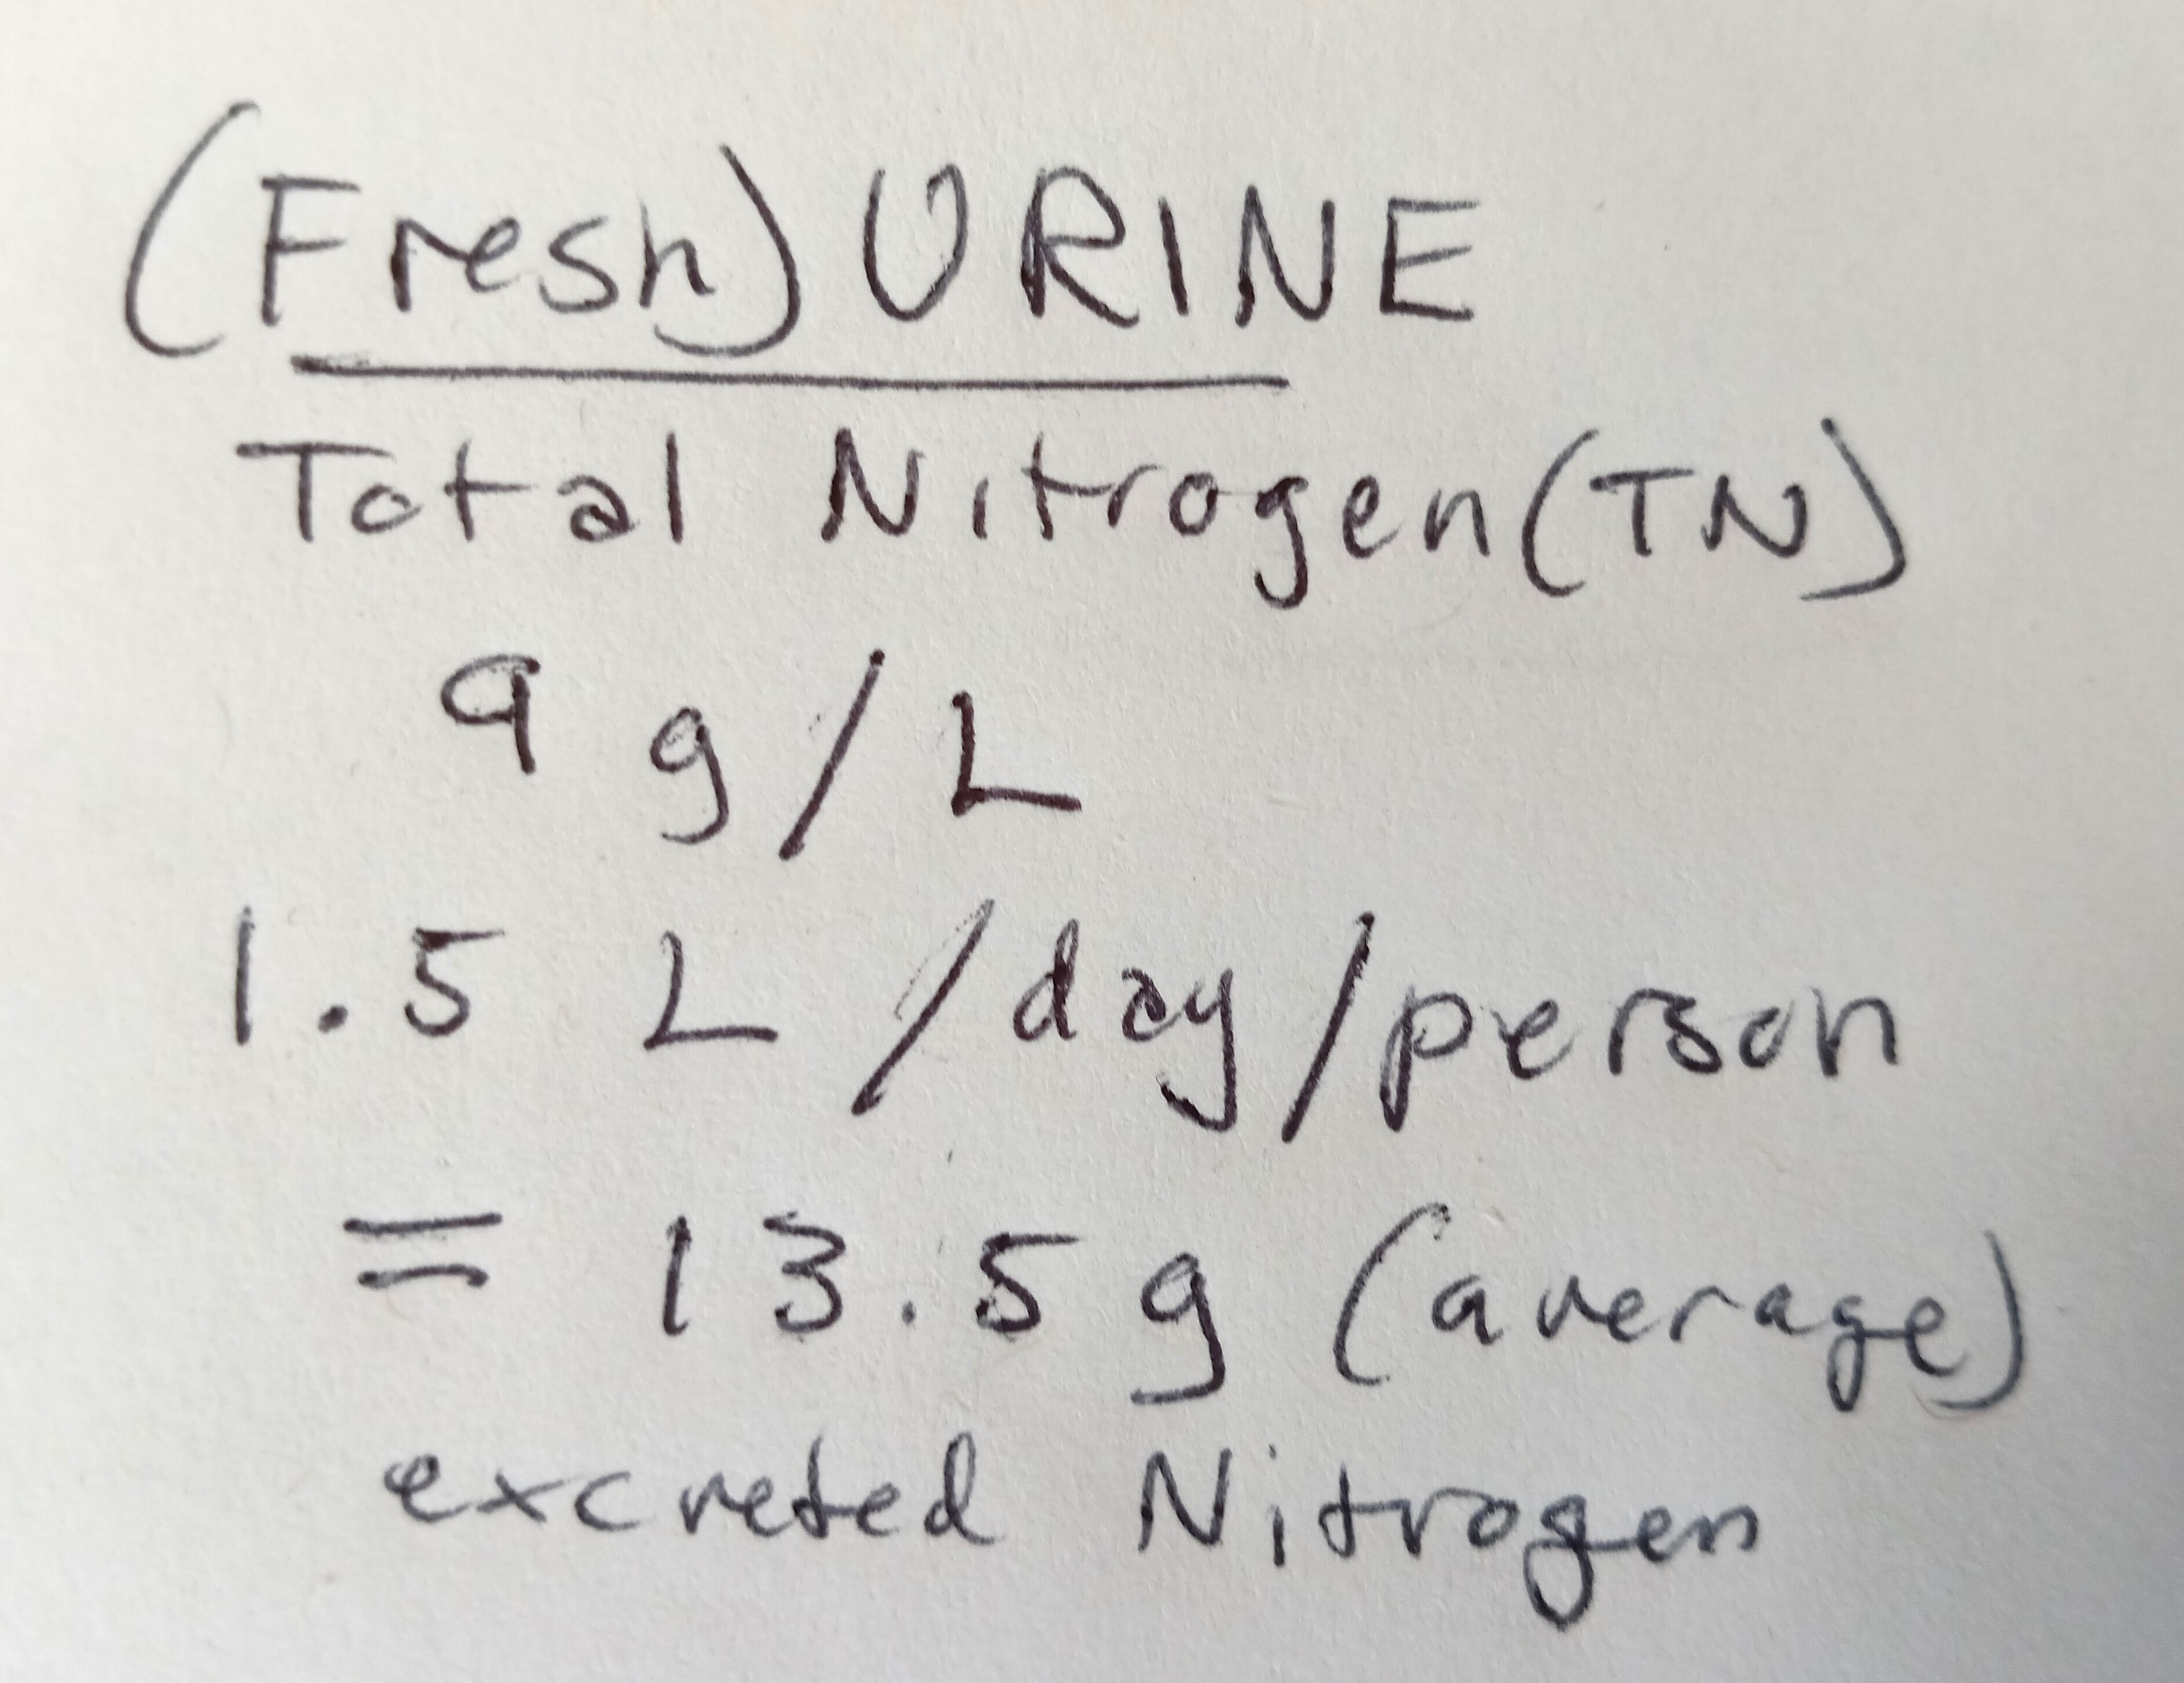 (Fresh) URINE
Total Nitrogen (TN)
9 g/L
1.5 L/day/person
= 13.5 g (average)
excreted Nitrogen